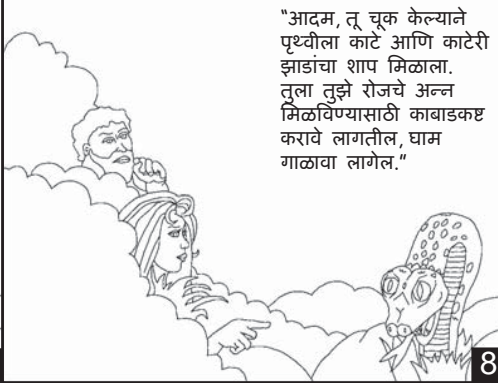 "आदम, तू चूक केल्याने
पृथ्वीला काटे आणि काटेरी
झाडांचा शाप मिळाला.
तुला तुझे रोजचे अन्न
मिळविण्यासाठी काबाडकष्ट
करावे लागतील, घाम
गाळावा लागेल."
8